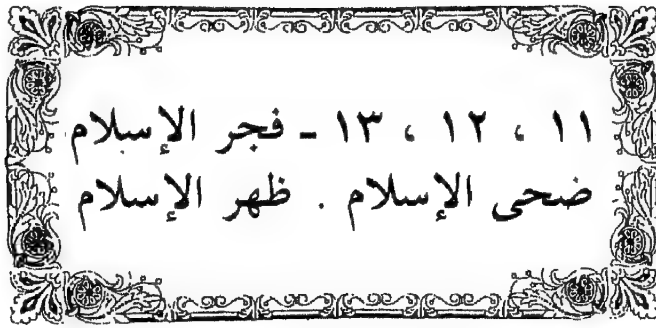 ١١ ، ١٢ ، ١٣ ـ فجر الإسلام
ضحى الإسلام . ظهر الإسلام